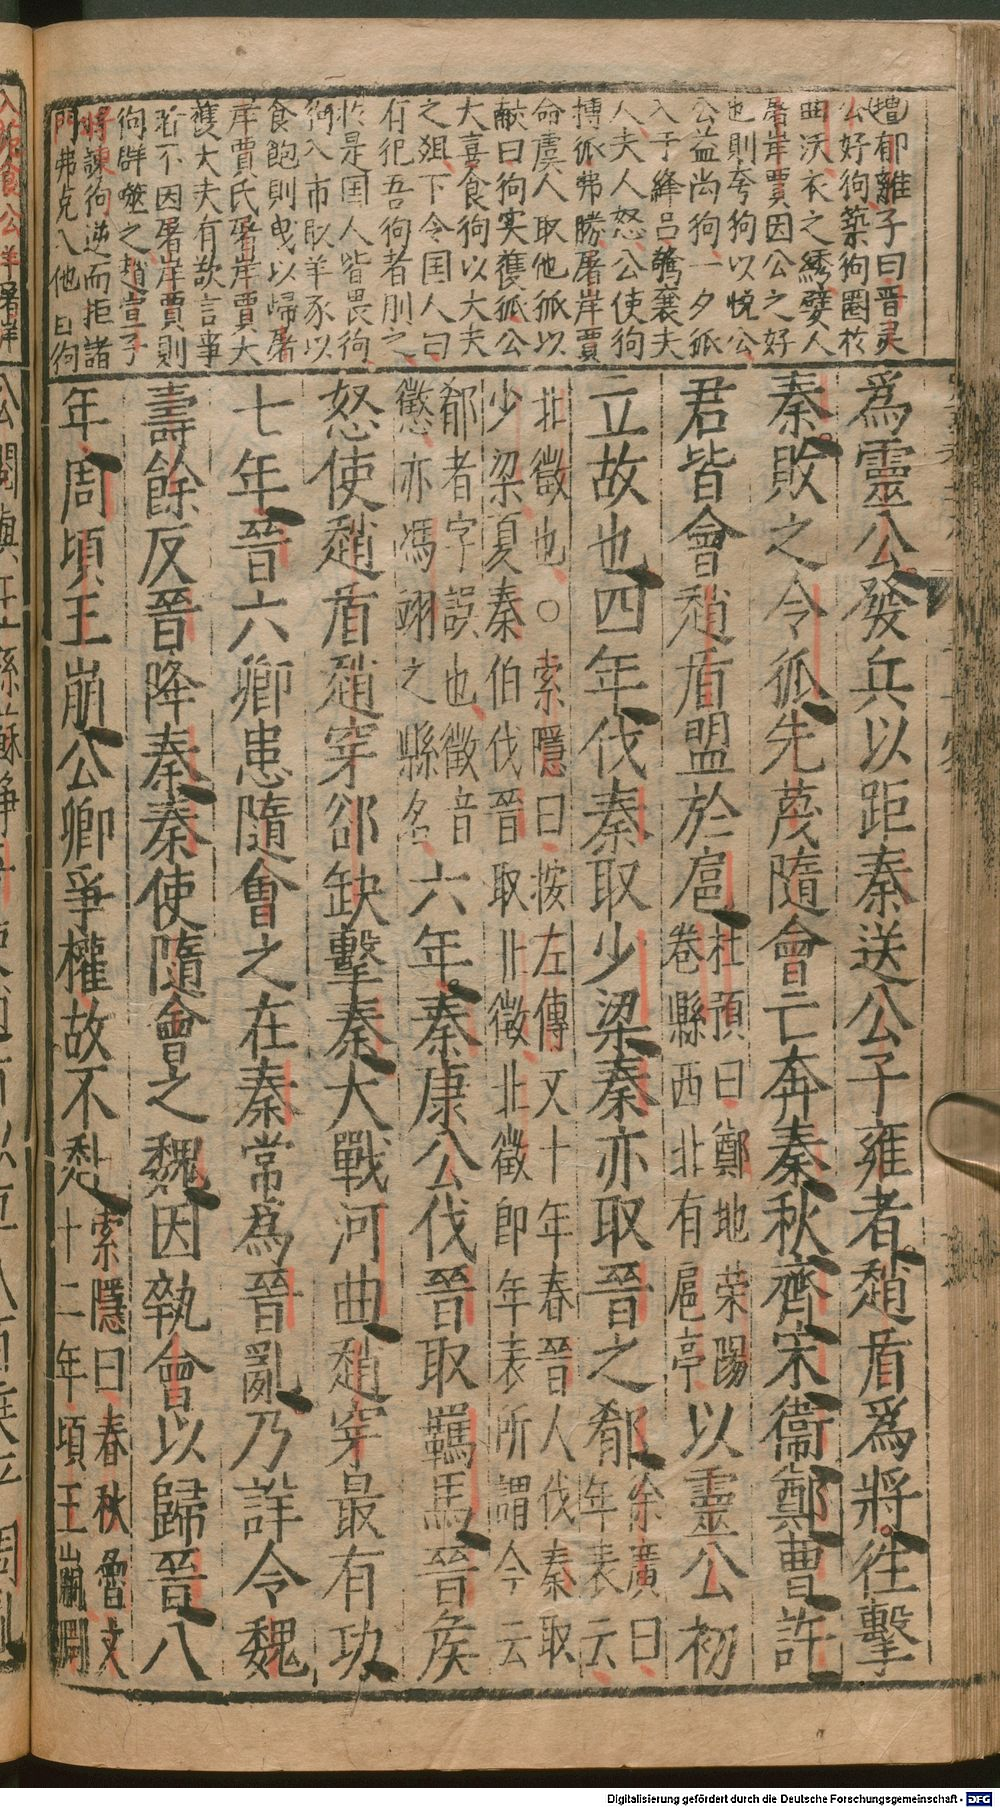 郁離子曰晋灵
公好狗築狗圈於
曲沃衣之綉嬖人
屠岸賈因公之好
也則夸狗以悅公
公益尚狗一夕狐
入于絳宮驚襄夫
人夫人怒公使狗
搏狐弗勝屠岸賈
命虞人取他狐以
献曰狗实獲狐公
大喜食狗以大夫
之俎下令国人曰
有犯吾狗者刖之
於是国人皆畏狗
狗入市取羊豕以
食飽則曳以歸屠
岸賈氏屠岸賈大
獲大夫有欲言事
者不因屠岸賈則
狗群噬之趙宣子
將諫狗逆而拒諸
門弗克入他日狗
為靈公發兵以距秦送公子雍者趙盾為將往擊
秦敗之令狐先蔑隨會亡奔秦秋齊宋衞鄭曹許
君皆會趙盾盟於扈
杜預曰鄭地荣陽
卷縣西北有扈亭
以靈公初
立故也四年伐秦取少梁秦亦取晉之郩
徐廣曰
年表云
北徵也○索隱曰按左傳文十年春晉人伐秦取
少梁夏秦伯伐晉取北徵北徵即年表所謂今云
郩者字誤也徵音
懲亦馮翊之縣名
六年秦康公伐晉取羈馬晉侯
怒使趙盾趙穿郤缺擊秦大戰河曲趙穿最有功
七年晉六卿患隨會之在秦常為晉亂乃詳令魏
壽餘反晉降秦秦使隨會之魏因執會以歸晉八
年周頃王崩公卿爭權故不赴
索隱曰春秋魯文
十二年頃王崩周
Digitalisierung gefördert durch die Deutsche Forschungsgemeinschaft - DFG